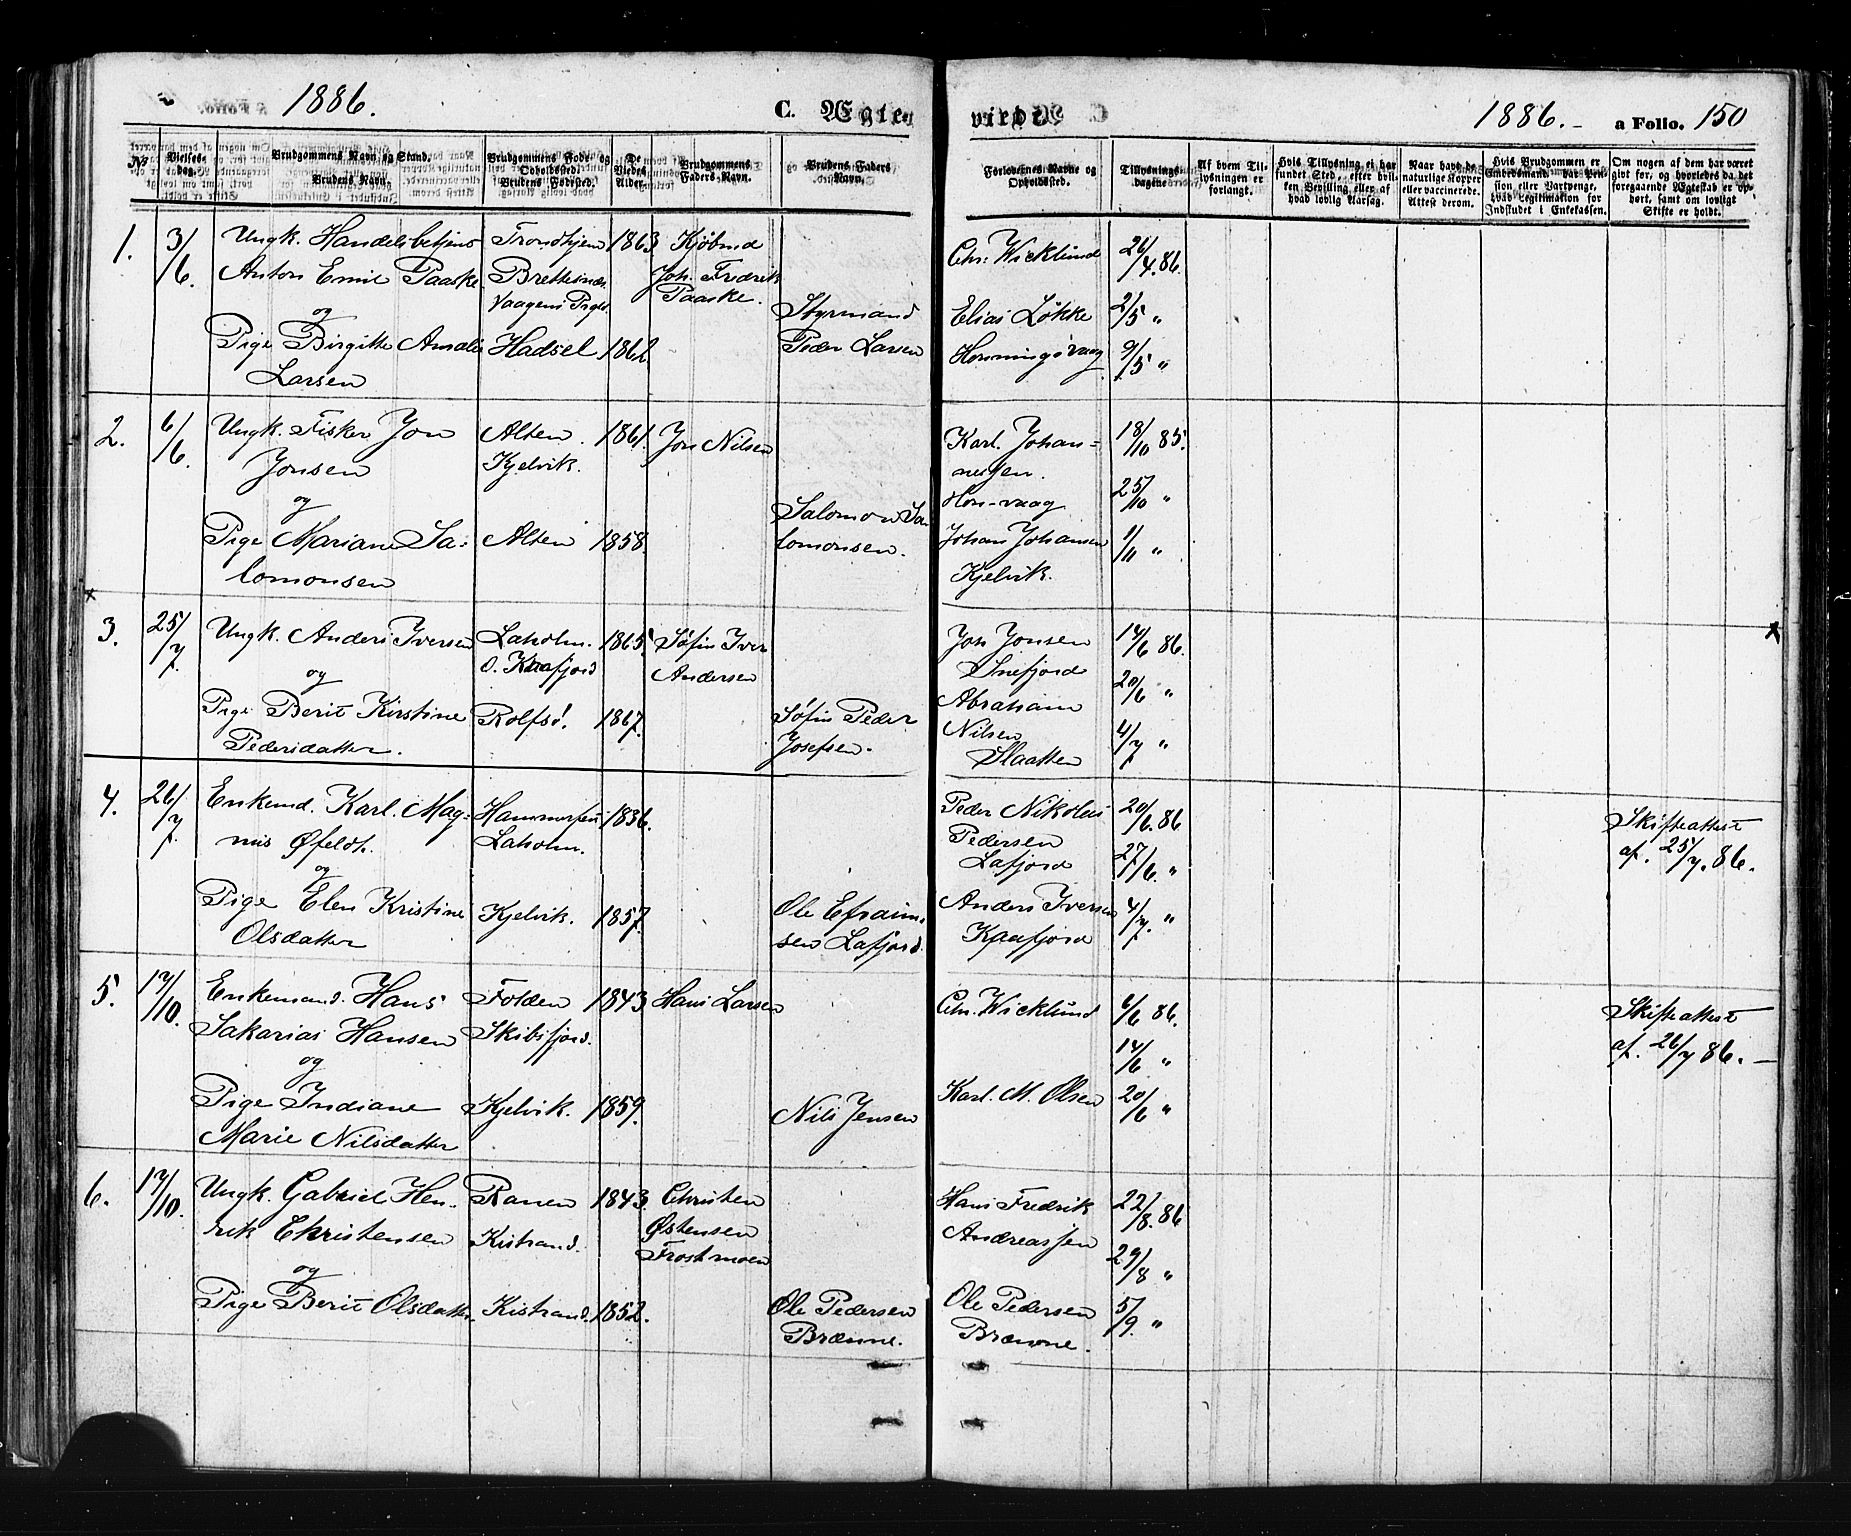 1886.
C. Ægte-
viede.
1886.
a Folio. 150
No
Vielses-
dag.
Brudgommens Navn og Stand.
Brudens Navn.
Brudgommens Føde- og
Opholdssted.
Brudens Fødested.
De
Viedes
Alder.
Brudgommens
Faders Navn.
Brudens Faders
Navn.
Forlovernes Navne og
Opholdssted.
Tillysnings-
dagene.
Af hvem Til-
lysningen er
forlangt.
Hvis Tillysning ei har
fundet Sted, efter hvil-
ken Bevilling eller af
hvad lovlig Aarsag.
Naar havt de
naturlige Kopper
eller vaccinerede.
Attest derom.
Hvis Brudgommen er
Embedsmand, har Pen-
sion eller Vartpenge,
hvad Legitimation for
Indskudet i Enkekassen.
Om nogen af dem har været
gift før, og hvorledes da det
foregaaende Ægteskab er op-
hørt, samt om lovligt
Skifte er holdt.
1. 3/6. Ungk. Handelsbetjent Trondhjem 1863 Kjøbmd
Anton Emil Paaske Brettesnæs Joh. Fredrik
Vaagens Prgld. Paaske.
og
Styrmand
Pige Birgitte Amalie Hadsel 1862. Peder Larsen
Larsen
Chr. Wicklund 26/4. 86.
Elias Løkke 2/5 "
Honningsvaag 9/5 "
2. 6/6. Ungk. Fisker Jon Alten. 1861. Jon Nilsen
Jonsen Kjelvik.
og
Salomon Sa
Pige Mariane Sa- Alten 1858. lomonsen.
lomonsen
Karl. Johan- 18/10 85.
nesen.
Hon-vaag 25/10 "
Johan Johansen 1/11 "
Kjelvik.
3. 25/7. Ungk. Anders Iversen Laholm. 1865. Søfin Iver
o. Kaafjord Andersen
og
Pige Berit Kirstine Rolfsø. 1867. Søfin Peder
Pedersdatter. Josefsen.
Jon Jonsen 14/6 86.
Snefjord 20/6 "
Abraham
Nilsen 4/7 "
Slaatten
4. 26/7. Enkemd. Karl. Mag- Hammerfest 1836.
nus Øfeldt. Laholm.
og
Pige Elen Kristine Kjelvik. 1857. Ole Efraim-
Olsdatter sen Lafjord.
Peder Nikolai 20/6. 86
Pedersen
Lafjord 27/6. "
Anders Iversen 4/7. "
Kaafjord
Skifteattest
af. 25/7. 86.
5. 17/10. Enkemand. Hans Folden 1843 Hans Larsen
Sakarias Hansen Skibsfjord.
og
Pige Indiane Kjelvik. 1859. Nils Jensen
Marie Nilsdatter
Chr. Wicklund 6/6 86.
14/6 "
Karl. M. Olsen 20/6 "
Skifteattest
af. 26/7 86.
6. 17/10. Ungk. Gabriel Hen- Ranen 1843. Christen
rik Christensen Kistrand. Østensen
Frostmoen
og
Pige Berit Olsdatter Kistrand. 1852. Ole Pedersen
Brænne.
Hans Fredrik 22/8. 86
Andreassen
29/8 "
Ole Pedersen 5/9. "
Brænne.